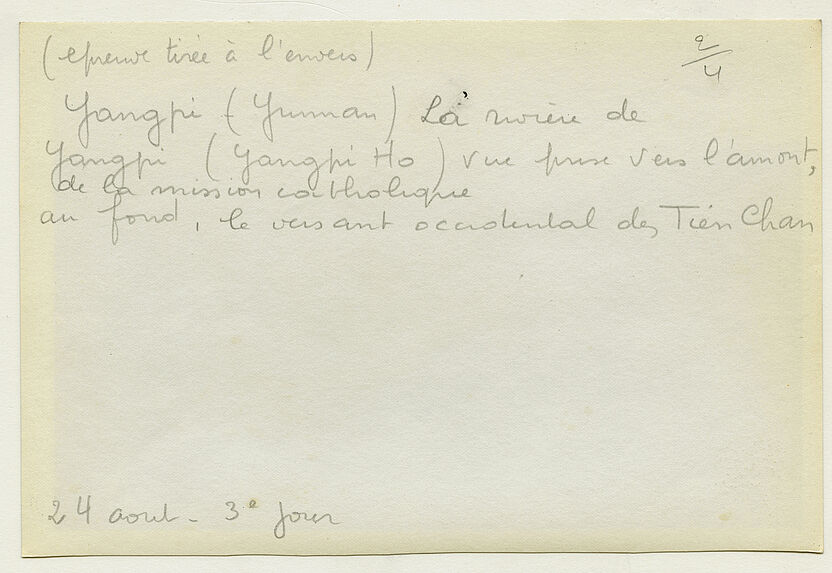 (épreuve tirée à l'envers)
2/4
Yangpi (Yunnan) La rivière de
Yangpi (Yangpi Ho) vue prise vers l'amont,
de la mission catholique
au fond, le versant occidental des Tien Chan
24 aout - 3e jour